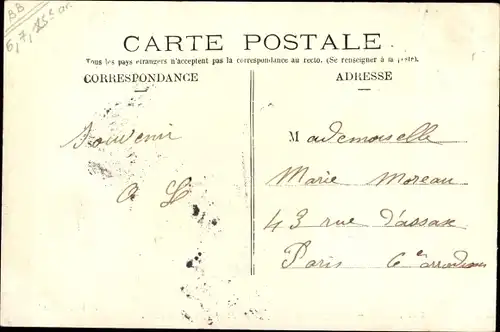 BB
6, 7,
CARTE POSTALE
Tous les pays étrangers n'acceptent pas la correspondance au recto. (Se renseigner à la poste).
CORRESPONDANCE
ADRESSE
Souvenir
Mademoiselle
Marie Moreau
43 rue d'assas
Paris 6e